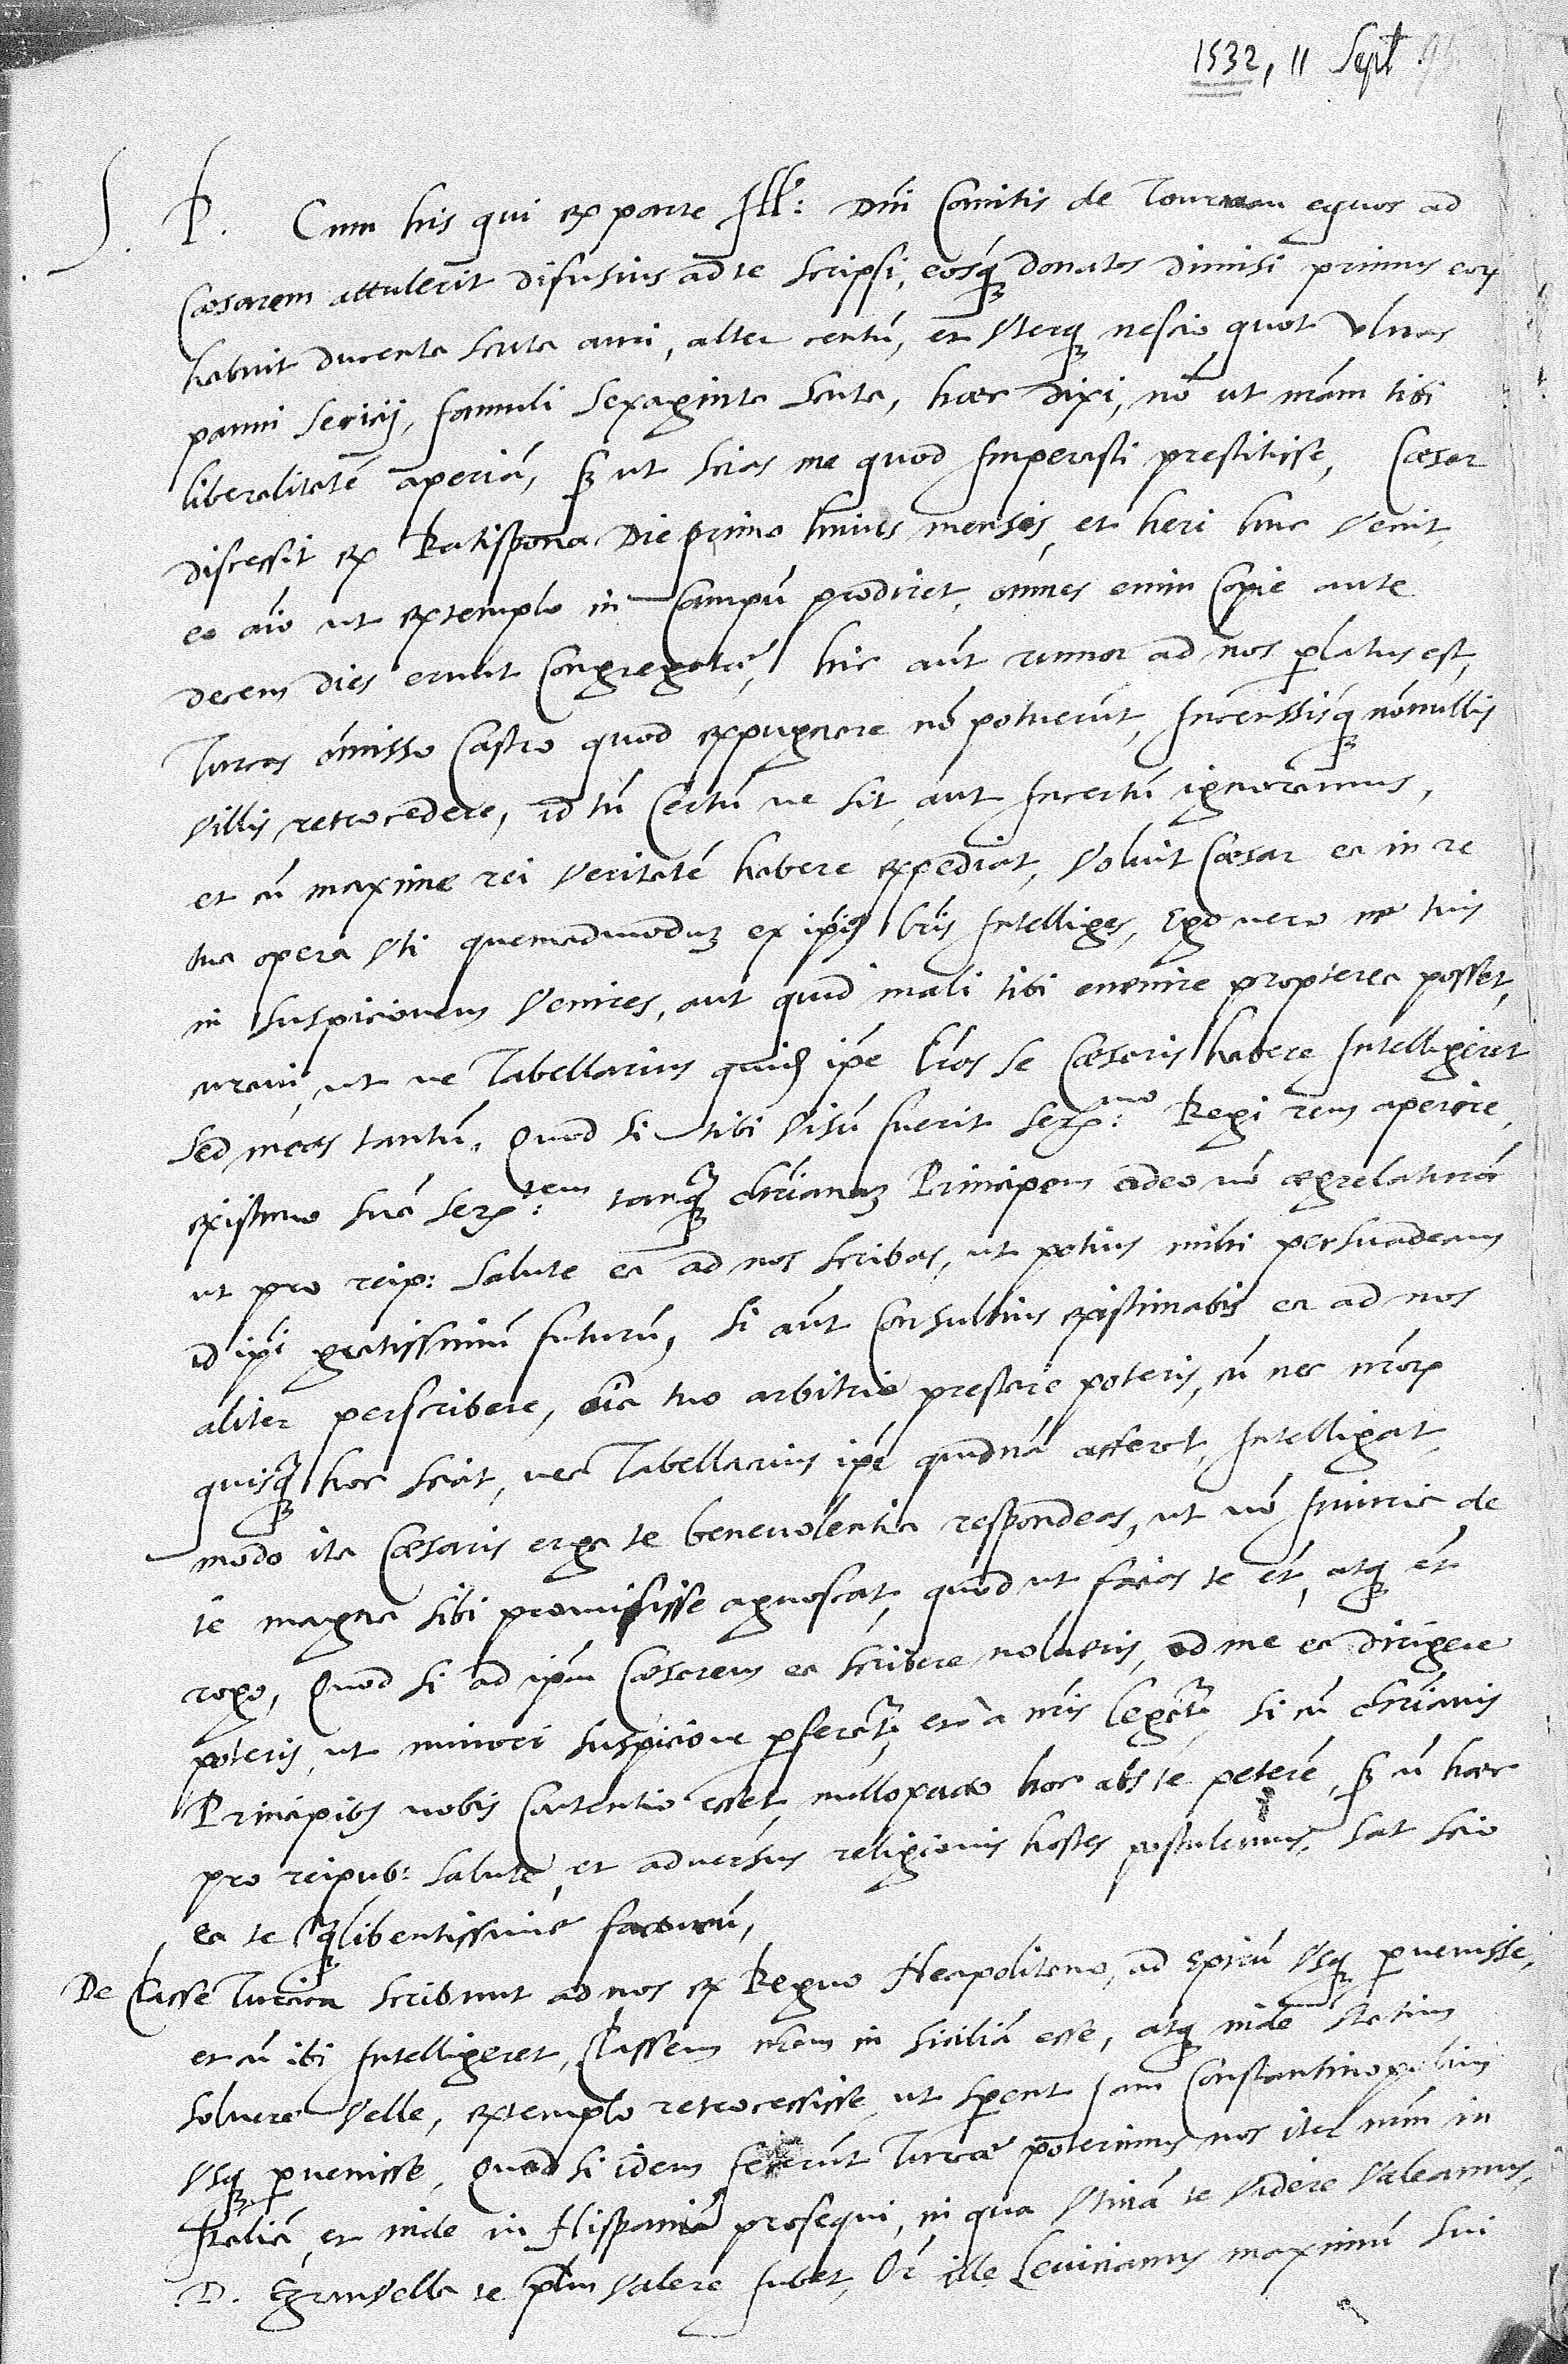 1532, 11 Sept
S. P. Cum his qui ex parte Ill: Dni Comitis de equos ad
Caesarem attulerūt difusius ad te scripsi, eosq donatos dimisi primus eorꝝ
habuit ducenta scuta auri, alter centū, et Vterq nescio quot Vlnas
panni sericij, famuli sexaginta scuta, haec dixi, nō ut meam tibi
liberalitatē aperiā, sꝫ ut scias me quod Imperasti prestitisse, Caesar
discessit ex Ratispona Die primo huius mensis, et heri huc Venit,
eo aīo ut extemplo in Campū prodiret, omnes enim Copie ante
decem dies erunt Congregatę, hic aūt rumor ad nos perlatus est,
Turcas omisso Castro quod expugnare nō potuerūt, Incenssisq nōnullis
Villis retrocedere, id tn̄ Certū ne sit, aut Incertū ignoramus,
et cū maxime rei Veritatē habere expediat, Voluit Caesar ea in re
tua opera Vti quemadmoduꝫ ex ipīs lrīs Intelliges, Ego uero ne tuis
in suspicionem Venires, aut quid mali tibi euenire propterea posset,
curaui, ut ne Tabellarius quidē ipē lrās se Caesaris habere Intelligeret
sed meas tantū. Quod si tibi Visū fuerit Serꝫ:mo Regi rem aperire,
existimo suā Serꝫ:tem tanq chrīanuꝫ Principem adeo nō aegrelaturā
ut pro reip: salute ea ad nos scribas, ut potius mihi persuadeam
id ipī gratissimū futurū, Si aūt Consultius existimabis ea ad nos
aliter perscribere, oīa tuo arbitrio prestare poteris, cū nec nrōꝝ
quisq hoc sciat, nec Tabellarius ipē quidnā afferat, Intelligat
modo ita Caesaris erga te beneuolentia respondeas, ut nō Inimic de
te magna sibi promisisse agnoscat, quod ut facias te ēt, atq ēt
rogo, Quod si ad ipm Caesarem ea scribere nolueris, ad me ea dirigere
poteris, ut minori suspicione perferātʳ et a nrīs legātʳ, Si cū chrīanis
Principibꝰ nobis Contentio esset, nullo pacto hoc abs te peterē, sꝫ cū haec
pro reipub: salute, et aduersus religionis hostes postulemus, sat scio
ea te q libentissime facturū,
De Classe Turcica scribunt ad nos ex Regno Neapolitano, ad Epirū Vsq peruenisse,
et cū ibi Intelligeret, Classem nram in Siciliā esse, atq inde statim
soluere Velle, extemplo retrocessisse, ut sperent Iam Constantinopolim
Vsq peruenisse, Quod si idem fecerūt Turcae poterimus nos iter nrm in
Italiā, et inde in Hispaniā prosequi, in qua Vtinā te Videre Valeamus,
D. Granvella te plm Valere Iubet, Or ille Leuinianus maximū sui